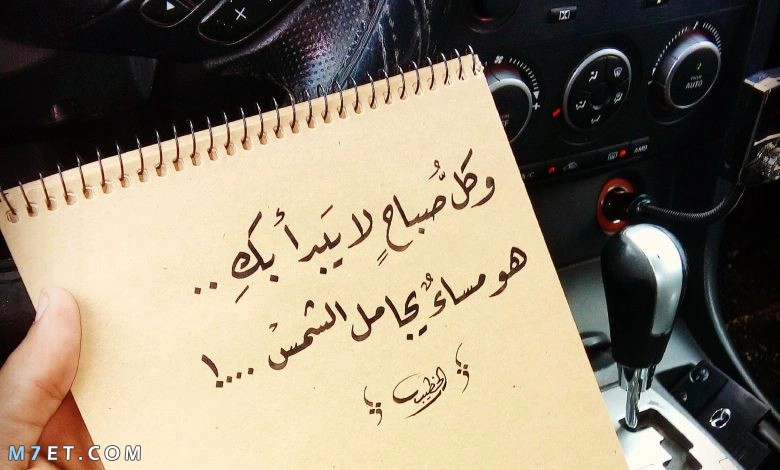 وكلُّ صباحٍ لا يَبدأ بكِ..
هو مساءٌ يجامل الشمسْ ....!
الخطيب
M7ET.COM
AUTO